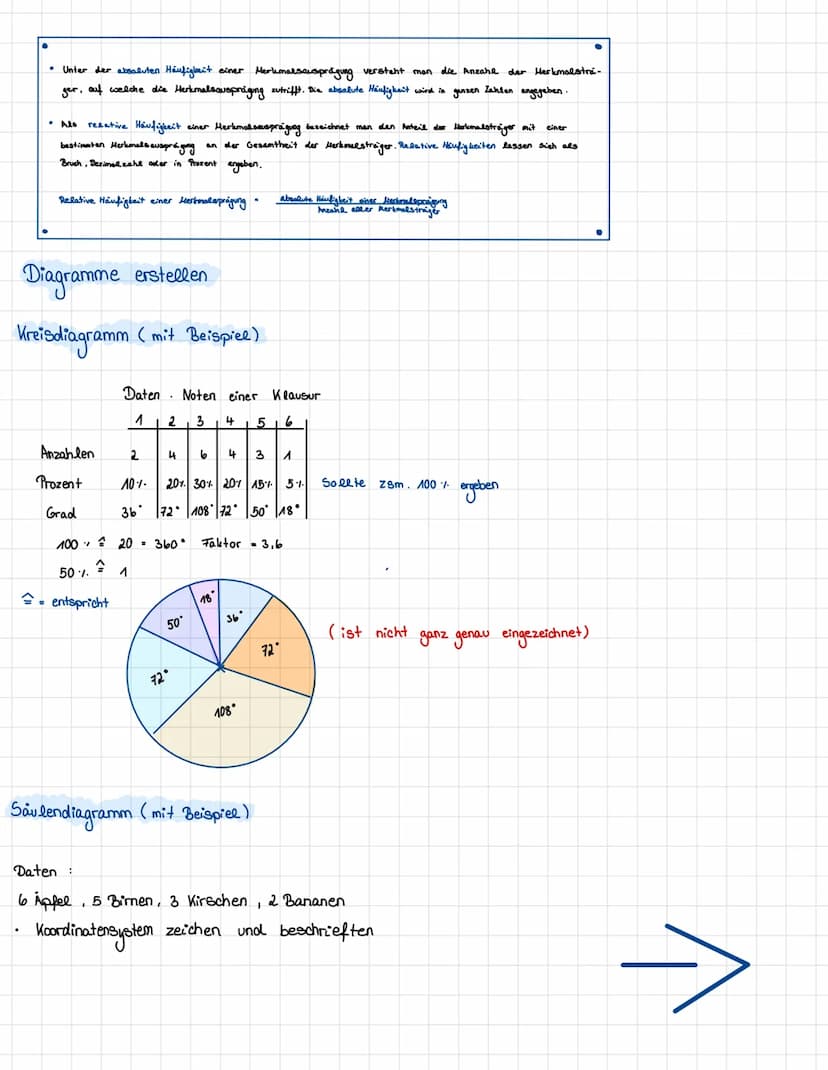 • Unter der absoluten Häufigkeit einer Merkmalsausprägung versteht man die Anzahl der Merkmalsträ-
ger, auf welche die Merkmalsausprägung zutrifft. Die absolute Häufigkeit wird in ganzen Zahlen angegeben.
• Als relative Häufigkeit einer Merkmalsausprägung bezeichnet man den Anteil der Merkmalsträger mit einer
bestimmten Merkmalsausprägung an der Gesamtheit der Merkmalsträger. Relative Häufigkeiten lassen sich als
Bruch, Dezimalzahl oder in Prozent angeben.
Relative Häufigkeit einer Merkmalsprägung = absolute Häufigkeit einer Merkmalsprägung
Anzahl aller Merkmalsträger
Diagramme erstellen
Kreisdiagramm (mit Beispiel)
Daten : Noten einer Klausur
1 2 3 4 5 6
Anzahlen 2 4 6 4 3 1
Prozent 10% 20% 30% 20% 15% 5% Sollte zsm. 100% ergeben
Grad 36° 72° 108° 72° 50° 18°
100% ≙ 20 = 360° Faktor = 3,6
50% ≙ 1
≙ = entspricht
18°
36°
50°
72°
(ist nicht ganz genau eingezeichnet)
72°
108°
Säulendiagramm (mit Beispiel)
Daten :
6 Äpfel, 5 Birnen, 3 Kirschen, 2 Bananen
• Koordinatensystem zeichen und beschrieften